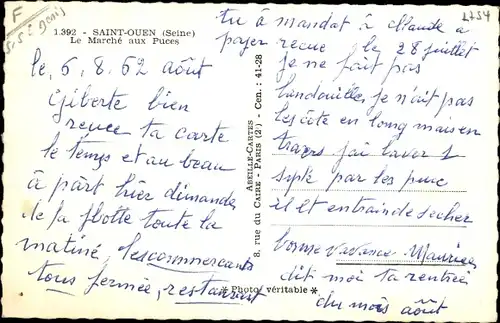 F
S.S.t Denis
1754
1.392 - SAINT-OUEN (Seine)
Le Marché aux Puces
le, 6, 8. 62 août
Giberte bien
recue ta carte
le temps et au beau
à part hier dimande
de la flotte toute la
matiné, les commercants
tous fermée, restaurant
ABEILLE-CARTES
8, rue du CAIRE - PARIS (2e) - Cen. : 41-28
*Photo véritable*
tu à mandat à Claude a
payer recue le 28 juillet
je ne fait pas
landouille, je n'ait pas
les côte en long mais en
travers j'ai lavor 1
par les puce
il et entrain de secher
bonne vavance Maurice
dit moi ta rentrée
du mois août